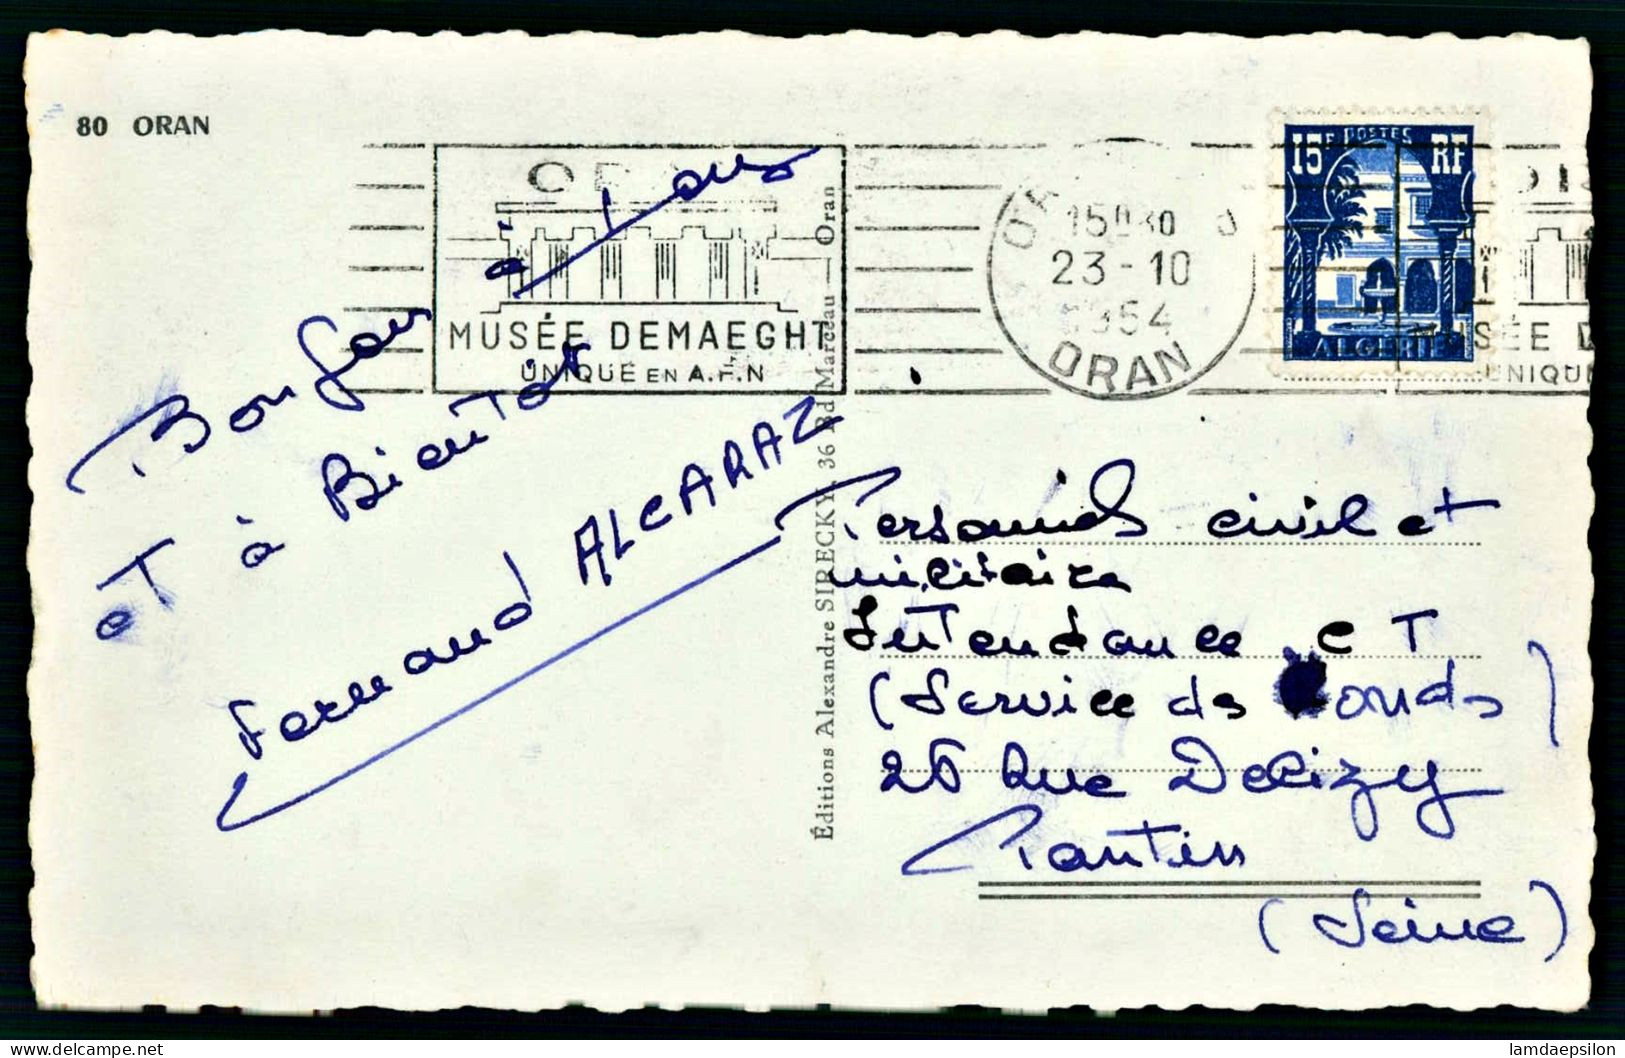 80 ORAN
OR
MUSÉE DEMAEGHT
UNIQUE EN A.F.N
15H30
23-10
1954
ORAN
15F POSTES RF
ALGERIE
MUSÉE D
UNIQU
Bonjour à tous
et à Bientôt
Fernand ALCARAZ
Éditions Alexandre SIRECKY, 36 Bd Marceau — Oran
Personnels civil et
militaire
Intendance CT
(Service de Fonds)
26 Rue Delizy
Pantin
(Seine)
lamdaepsilon
delcampe.net